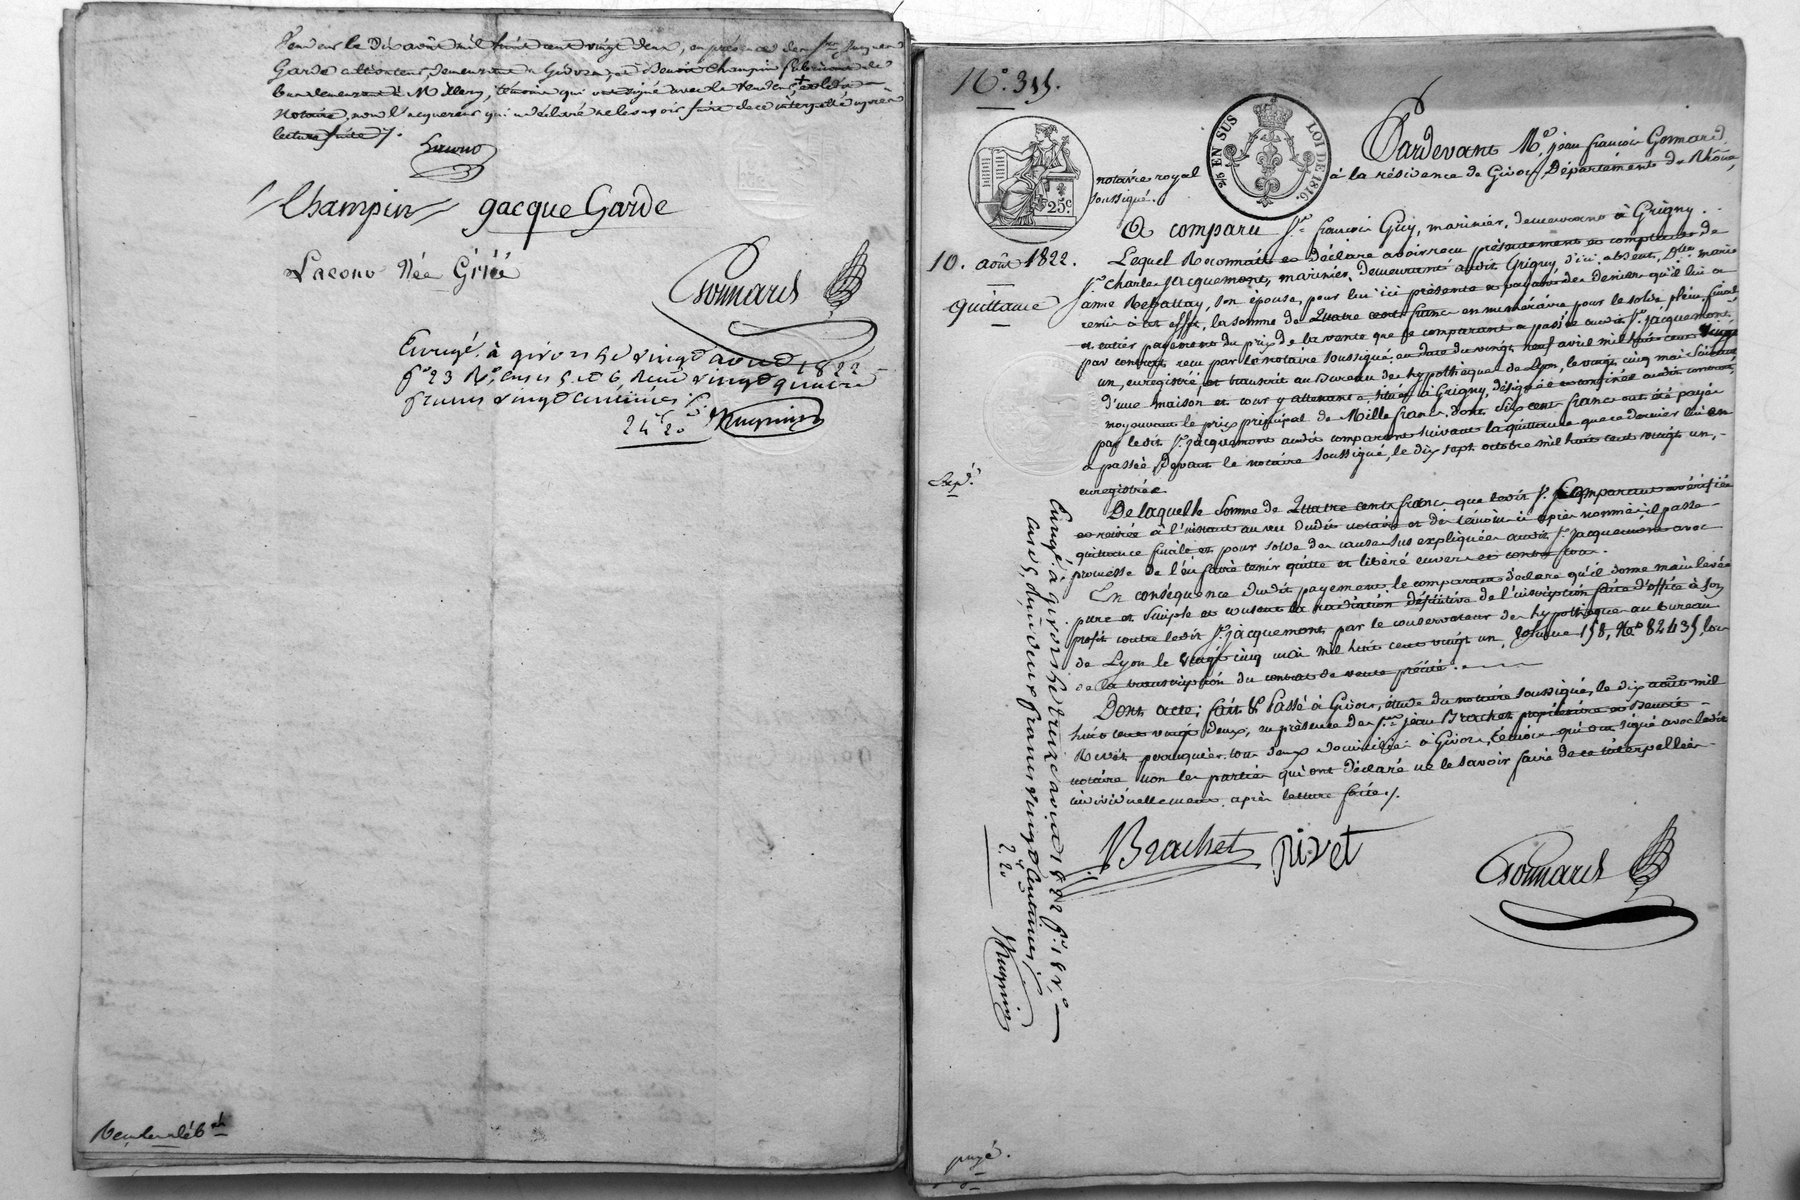 Demeure le dix août mil huit cent vingt deux, en présence de
Garde demeurant à Givors, et Benoit Champin fabricant de
demeurant à Millery, témoins qui ont signé avec le vendeur et le dit
notaire, non l'acquéreur qui a déclaré ne le savoir faire de ce interpellé après
lecture faite /.
Lacono
Champin gacque Garde
Lacono Née
Gonnard
Enregé. à givors le vingt aoust 1822
fo 23 Ro. cases 5 et 6, Reçu vingt quatre
francs vingt centimes
24 f 20
No. 315.
25c
2/5 EN SUS LOI DE 1816.
Pardevant Me. jean françois Gonnard,
notaire royal à la résidence de Givors, Département du Rhône,
soussigné.
A comparu Sr. françois Guy, marinier, demeurant à Grigny.
10. août 1822.
quittance
Lequel Reconnait et déclare avoir reçu présentement et comptant de
Sr. Charles jacquemont, marinier, demeurant audit Grigny, d'ici absent, marie
anne Rebattay, son épouse, pour lui ici présente et payant des deniers qu'il lui a
remis à cet effet, la somme de Quatre cents francs en numéraire pour le solde plein, final
et entier payement du prix de la vente que le comparant a passée audit Sr. jacquemont,
par contrat reçu par le notaire soussigné, en date du vingt neuf avril mil huit cent vingt
un, enregistré et transcrit au Bureau des hypothèques de Lyon, le vingt cinq mai suivant
d'une maison et cour y attenante, située à Grigny, désignée et confinée audit contrat,
moyennant le prix principal de Mille francs, dont six cent francs ont été payés
par ledit Sr. jacquemont audit comparant suivant la quittance que ce dernier lui en
a passée, Devant le notaire soussigné, le dix sept octobre mil huit cent vingt un,
enregistrée.
Exp.
De laquelle Somme de Quatre cents francs que ledit Sr. Comparant a vérifiée
et retirée à l'instant au vu dudit notaire et des témoins ci après nommés, il passe
quittance finale et pour solde des causes sus expliquées audit Sr. jacquemont avec
promesse de l'en faire tenir quitte et libéré envers et contre tous.
En conséquence dudit payement, le comparant déclare qu'il donne main levée
pure et simple et consent la radiation définitive de l'inscription faite d'office à son
profit contre ledit Sr. jacquemont, par le conservateur des hypothèques au bureau
de Lyon le vingt cinq mai mil huit cent vingt un, volume 158, No. 82435, lors
de la transcription du contrat de vente précité.
Dont acte; fait & Passé à Givors, étude du notaire soussigné, le dix août mil
huit cent vingt deux, en présence de Srs. jean Brachet propriétaire et Benoit
Rivet perruquier tous deux domiciliés à Givors, témoins qui ont signé avec ledit
notaire non les parties qui ont déclaré ne le savoir faire de ce interpellées
individuellement, après lecture faite /.
Brachet pivet
Gonnard
Enregé à givors le treize aoust 1822 fo. 18 Vo.
case 5, Reçu deux francs vingt centimes
2 f 20
payé.